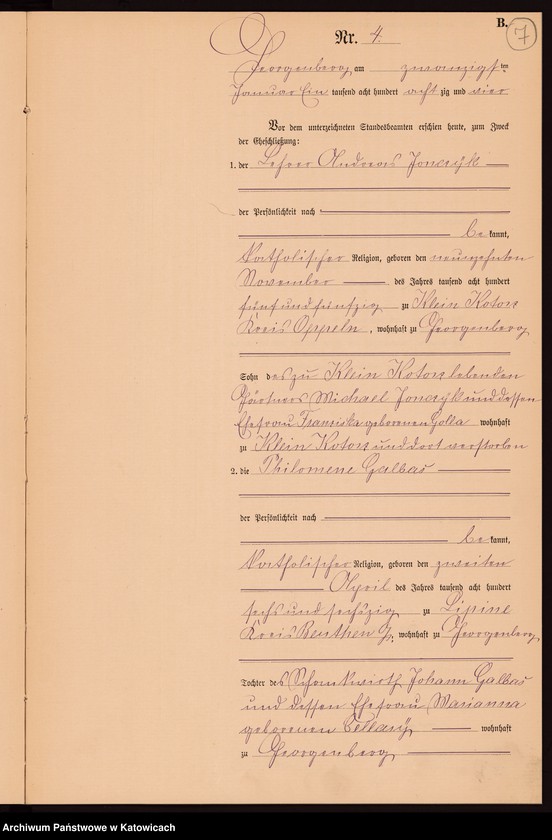 B.
7
Nr. 4.
Georgenberg am zwanzigsten
Januar Ein tausend acht hundert achtzig und vier
Vor dem unterzeichneten Standesbeamten erschien heute, zum Zweck
der Eheschließung:
1. der Lehrer Andreas Jonczyk
der Persönlichkeit nach
bekannt,
katholischer Religion, geboren den neunzehnten
November des Jahres tausend acht hundert
fünf und fünfzig zu Klein Kotorz
Kreis Oppeln, wohnhaft zu Georgenberg
Sohn des zu Klein Kotorz lebenden
Gärtners Michael Jonczyk und dessen
Ehefrau Franziska geborenen Golla wohnhaft
zu Klein Kotorz und dort verstorben
2. die Philomene Galbas
der Persönlichkeit nach
bekannt,
katholischer Religion, geboren den zweiten
April des Jahres tausend acht hundert
sechs und sechszig zu Lipine
Kreis Beuthen O/S, wohnhaft zu Georgenberg
Tochter des Schankwirth Johann Galbas
und dessen Ehefrau Marianna
geborenen wohnhaft
zu Georgenberg
Archiwum Państwowe w Katowicach